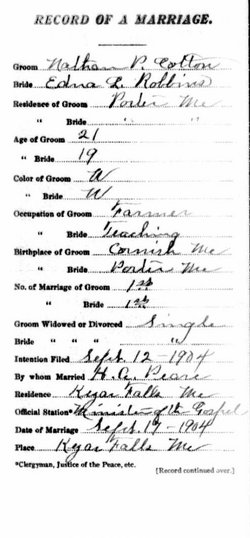 RECORD OF A MARRIAGE.
Groom Nathan P. Cotton
Bride Edna L. Robbins
Residence of Groom Porter Me
" Bride " "
Age of Groom 21
" Bride 19
Color of Groom W
" Bride W
Occupation of Groom Farmer
" Bride Teaching
Birthplace of Groom Cornish Me
" Bride Porter Me
No. of Marriage of Groom 1st
" Bride 1st
Groom Widowed or Divorced Single
Bride " " " "
Intention Filed Sept. 12-1904
By whom Married H. A. Peare
Residence Kezar Falls Me
Official Station* Minister of the Gospel
Date of Marriage Sept 17-1904
Place Kezar Falls Me
*Clergyman, Justice of the Peace, etc.
[Record continued over.]